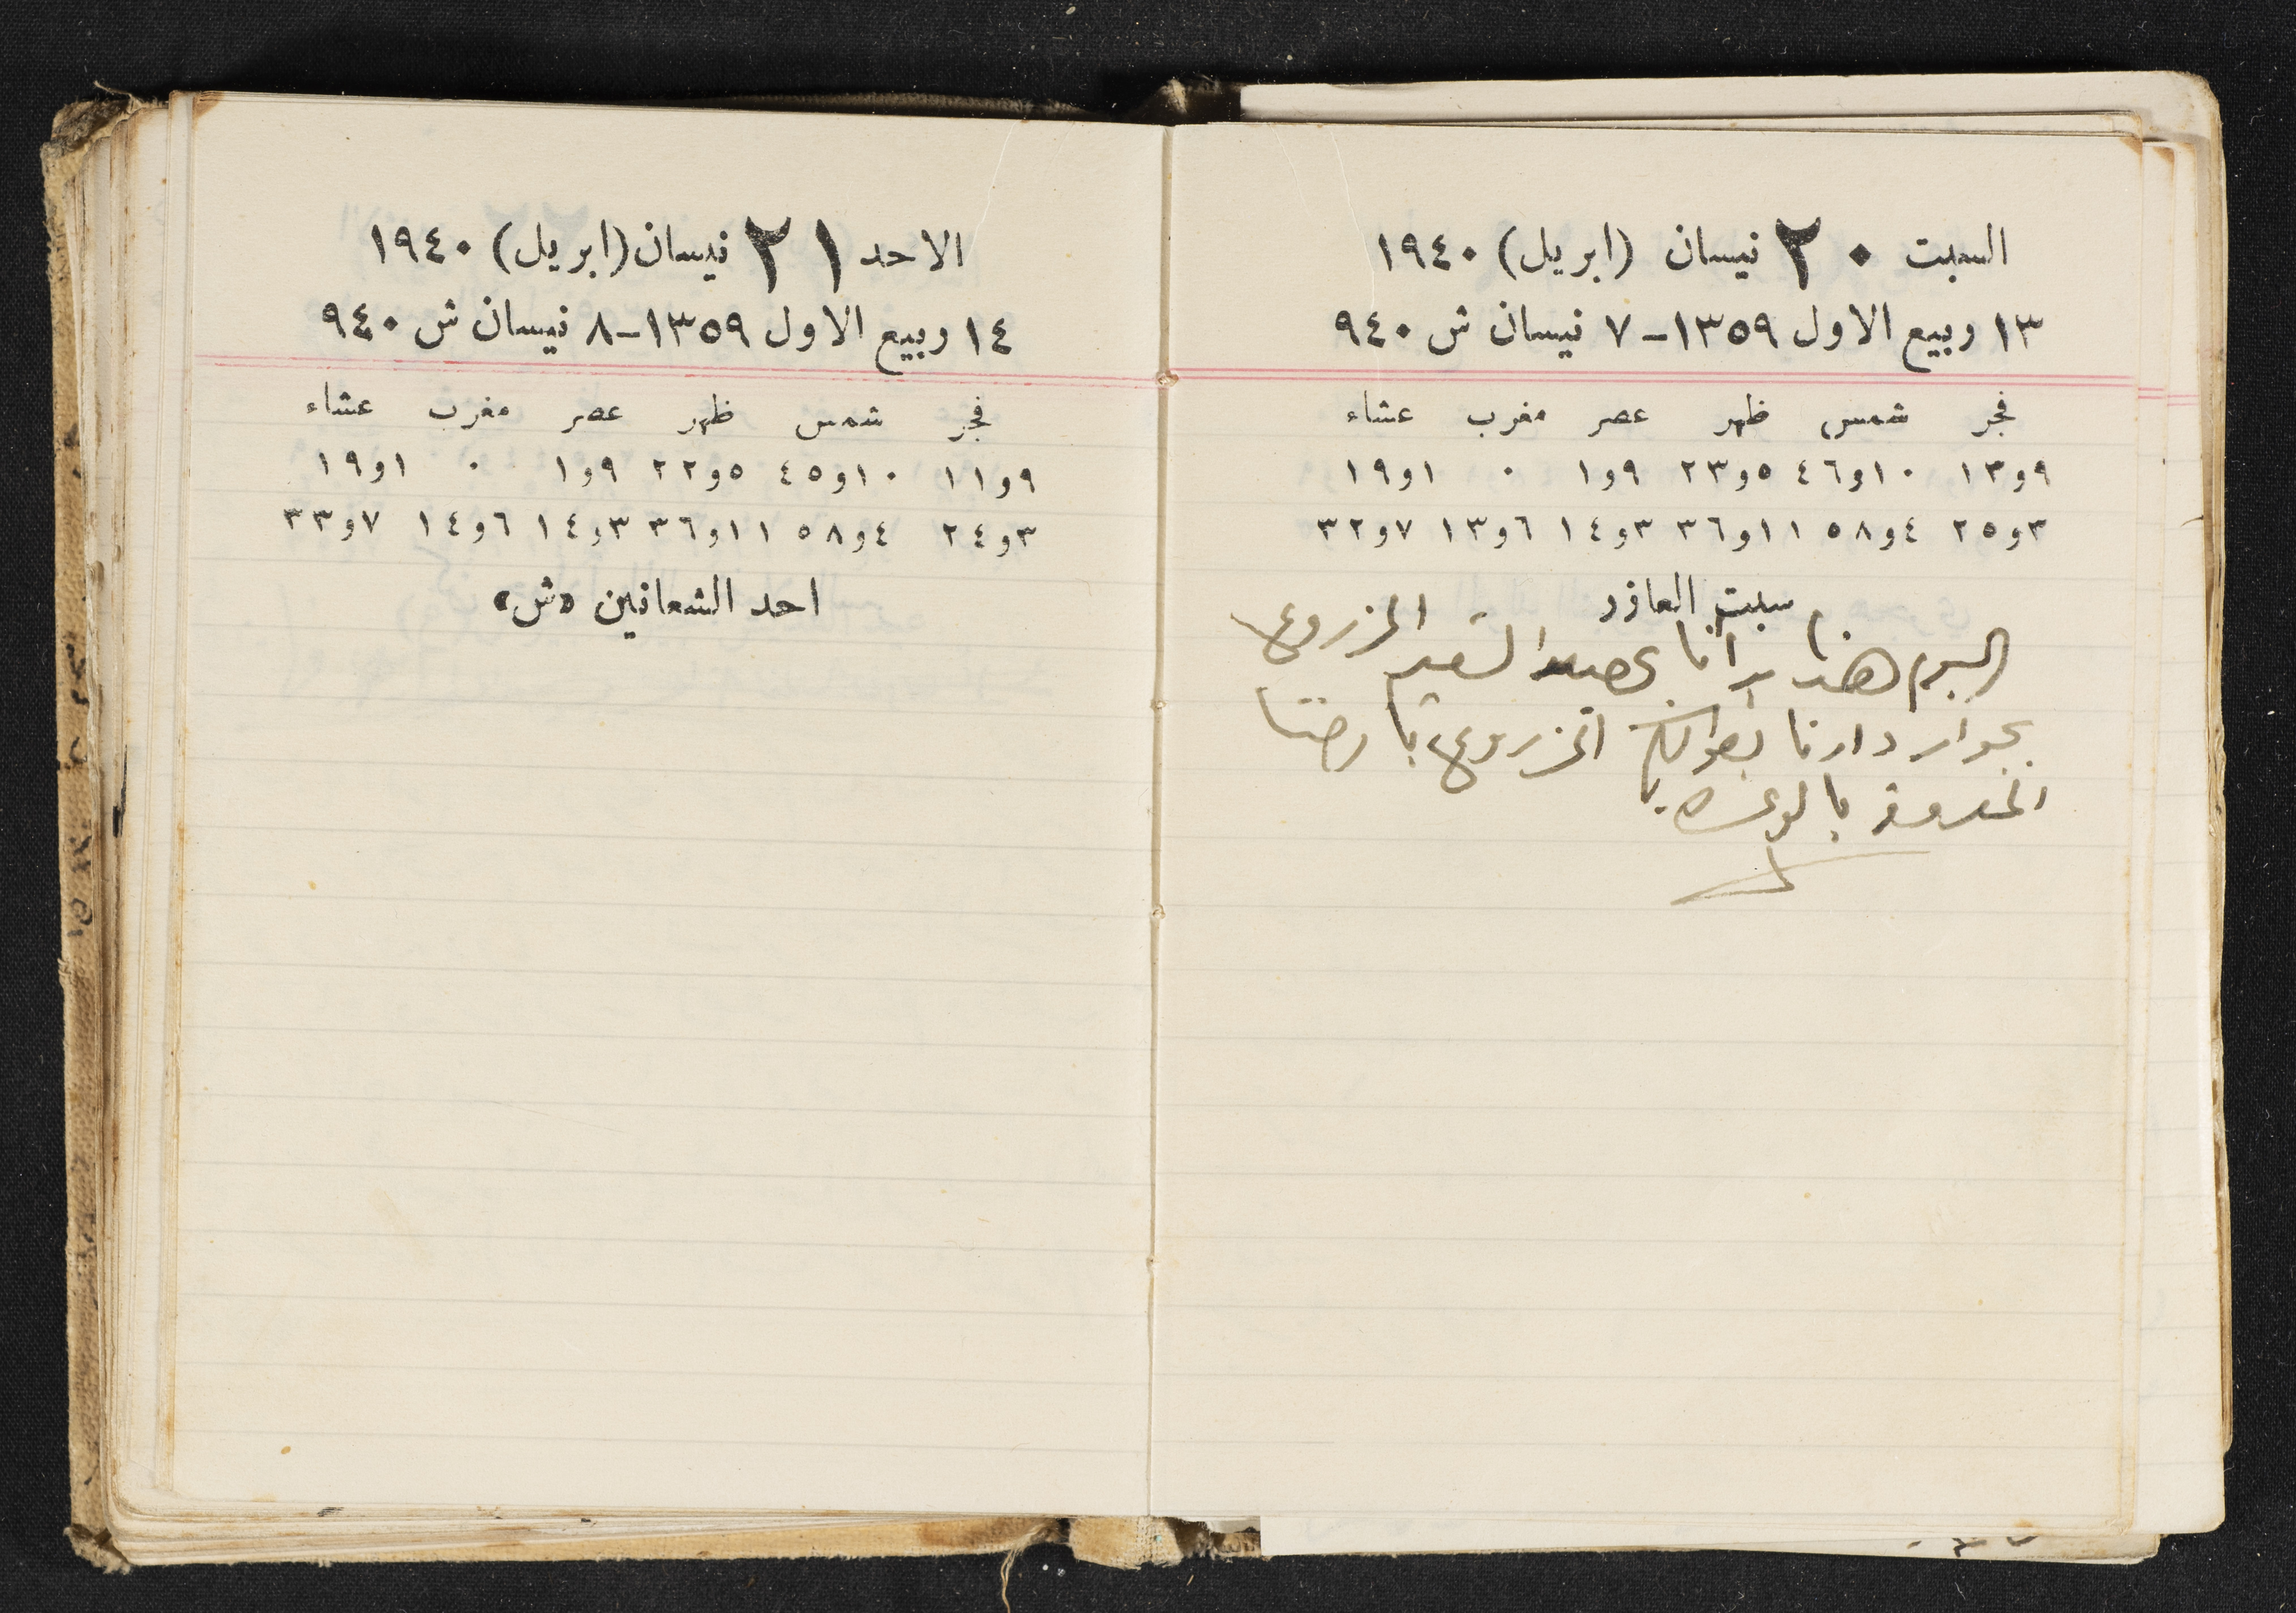 السبت ٢٠ نيسان (ابريل) ١٩٤٠
١٣ ربيع الاول ١٣٥٩-٧ نيسان ش ٩٤٠
فجر شمس ظهر عصر مغرب عشاء
٩و١٣ ١٠و٤٦ ٥و٢٣ ٩و١ ٠ ١و١٩
٣و٢٥ ٤و٥٨ ١١و٣٦ ٣و١٤ ٦و١٣ ٧و٣٢
سبت العازر
اليوم هذا بدأنا بحصد الشعير المزروع
بجوار دارنا المزروع بارضنا
المعروفة بالوعره
الاحد ٢١ نيسان (ابريل) ١٩٤٠
١٤ ربيع الاول ١٣٥٩-٨ نيسان ش ٩٤٠
فجر شمس ظهر عصر مغرب عشاء
٩و١١ ١٠و٤٥ ٥و٢٢ ٩و١ ٠ ١و١٩
٣و٢٤ ٤و٥٨ ١١و٣٦ ٣و١٤ ٦و١٤ ٧و٣٣
احد الشعانين «ش»